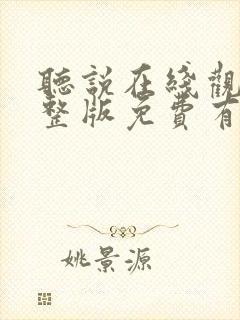 聽説在綫觀
整版免費有
姚景源